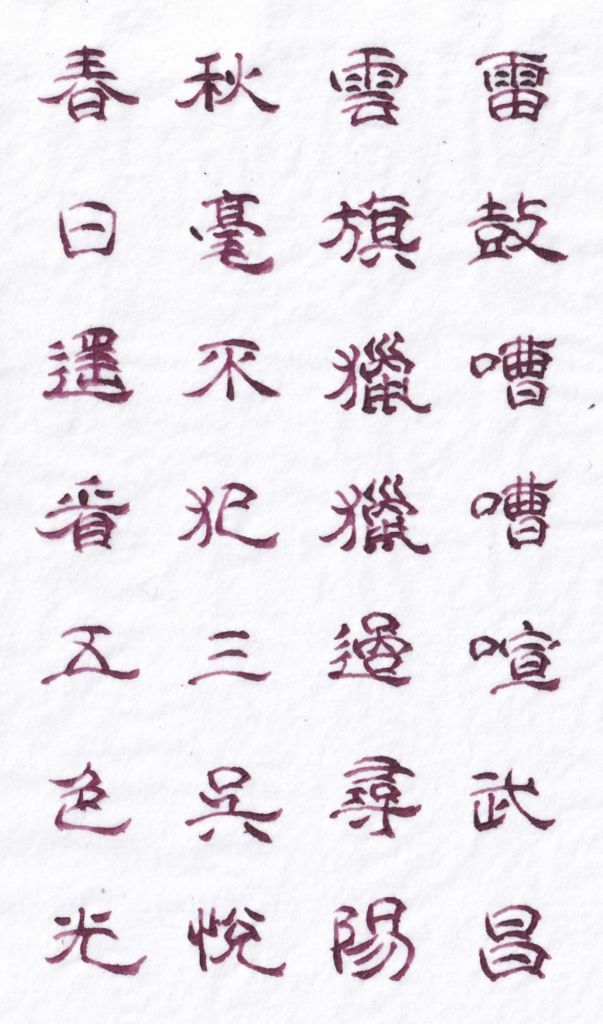 雷鼓嘈嘈喧武昌
雲旗獵獵過尋陽
秋毫不犯三吳悅
春日遥看五色光